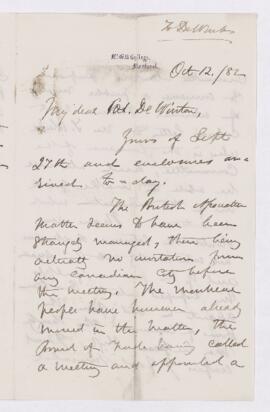 To De Winton
McGill College,
Montreal.
Oct 12, / 82
My dear Col. De Winton,
Yours of Sept
27th and enclosures ar-
rived to-day.
The British Association
Matter seems to have been
strangely managed, there being
actually no invitation from
any Canadian City before
the meeting. The Montreal
people have however already
moved in the matter, the
Board of Trade having called
a meeting and appointed a